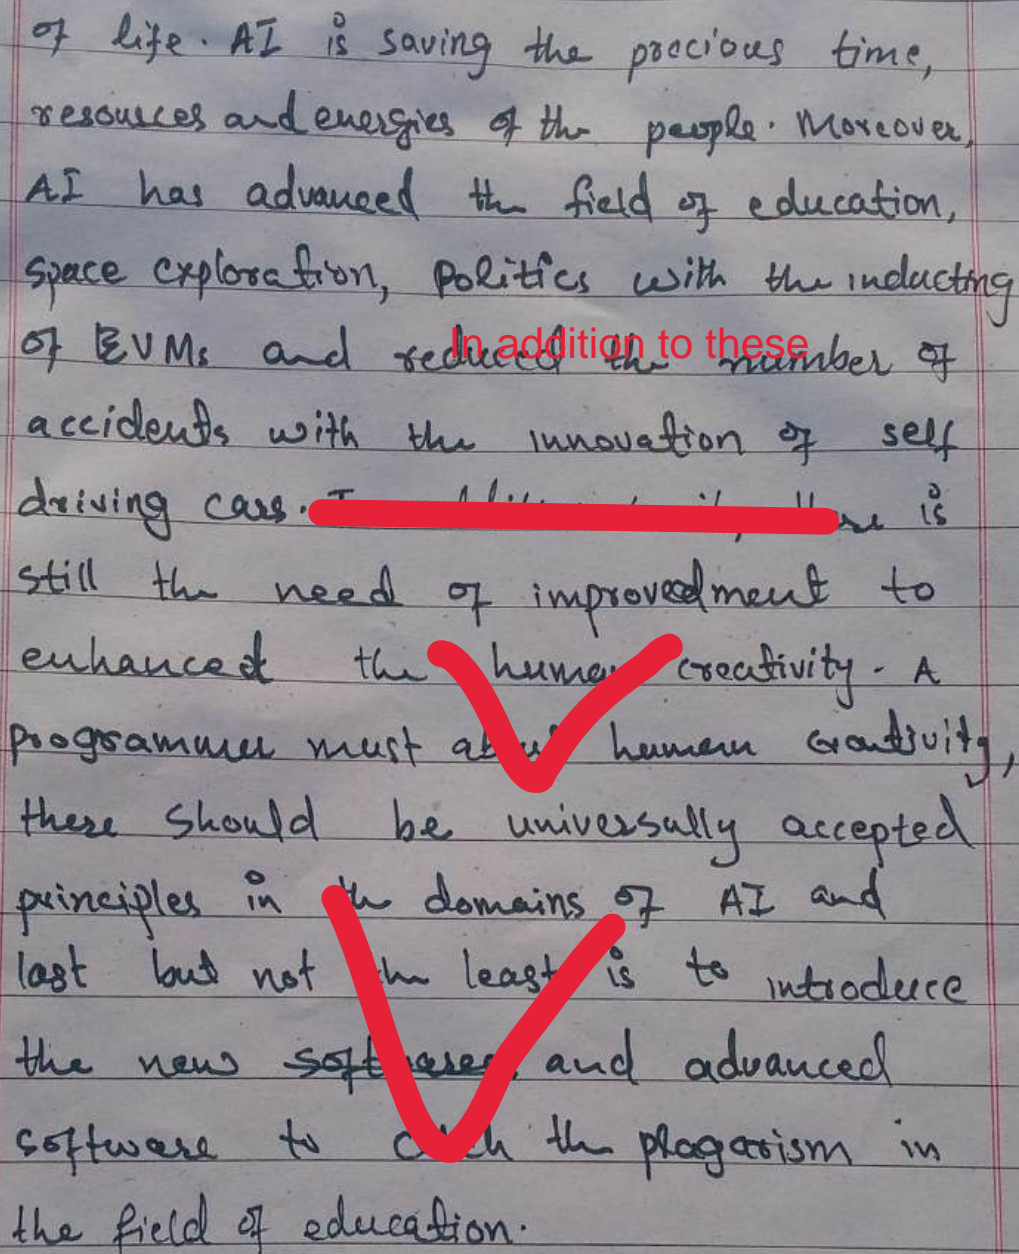 of life. AI is saving the precious time,
resources and energies of the people. Moreover,
AI has advanced the field of education,
space exploration, politics with the inducting
In addition to these
of EVMs and reduced the number of
accidents with the innovation of self
driving cars. is
still the need of improvedment to
enhanced the human creativity. A
programmer must human creativity,
there should be universally accepted
principles in the domains of AI and
last but not the least is to introduce
the new softwares and advanced
software to the plagarism in
the field of education.